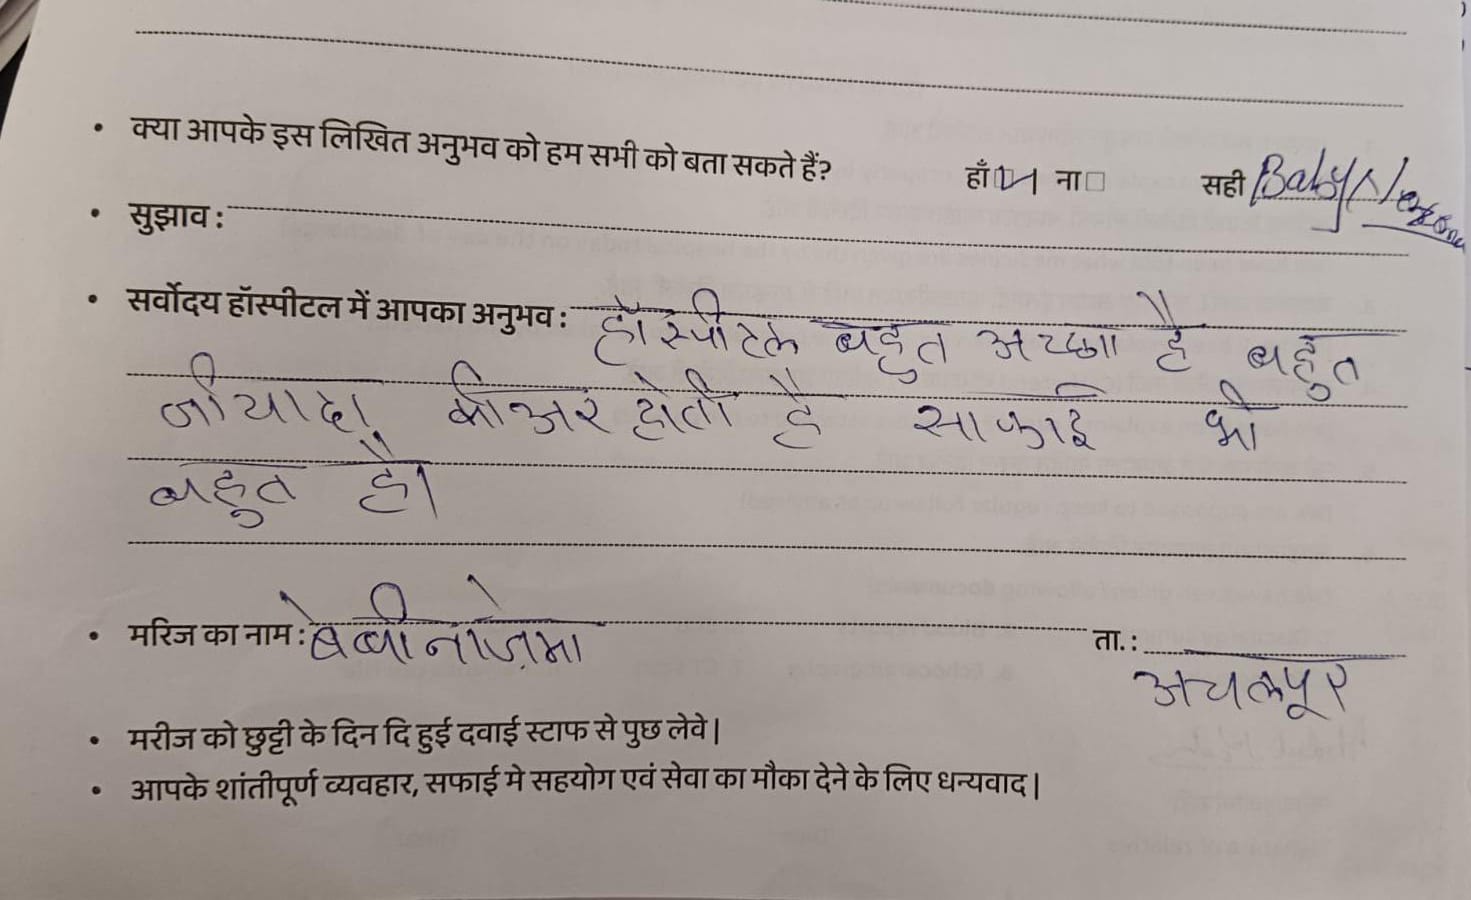 • क्या आपके इस लिखित अनुभव को हम सभी को बता सकते हैं? हाँ ना सही Baby
• सुझाव :
• सर्वोदय हॉस्पीटल में आपका अनुभव : हॉस्पीटल बहुत अच्छा है बहुत
जीयादा कीअर होती है साफाई भी
बहुत है।
• मरिज का नाम : बेबी नाज़मा ता. :
अचलपूर
• मरीज को छुट्टी के दिन दि हुई दवाई स्टाफ से पुछ लेवे |
• आपके शांतीपूर्ण व्यवहार, सफाई मे सहयोग एवं सेवा का मौका देने के लिए धन्यवाद |